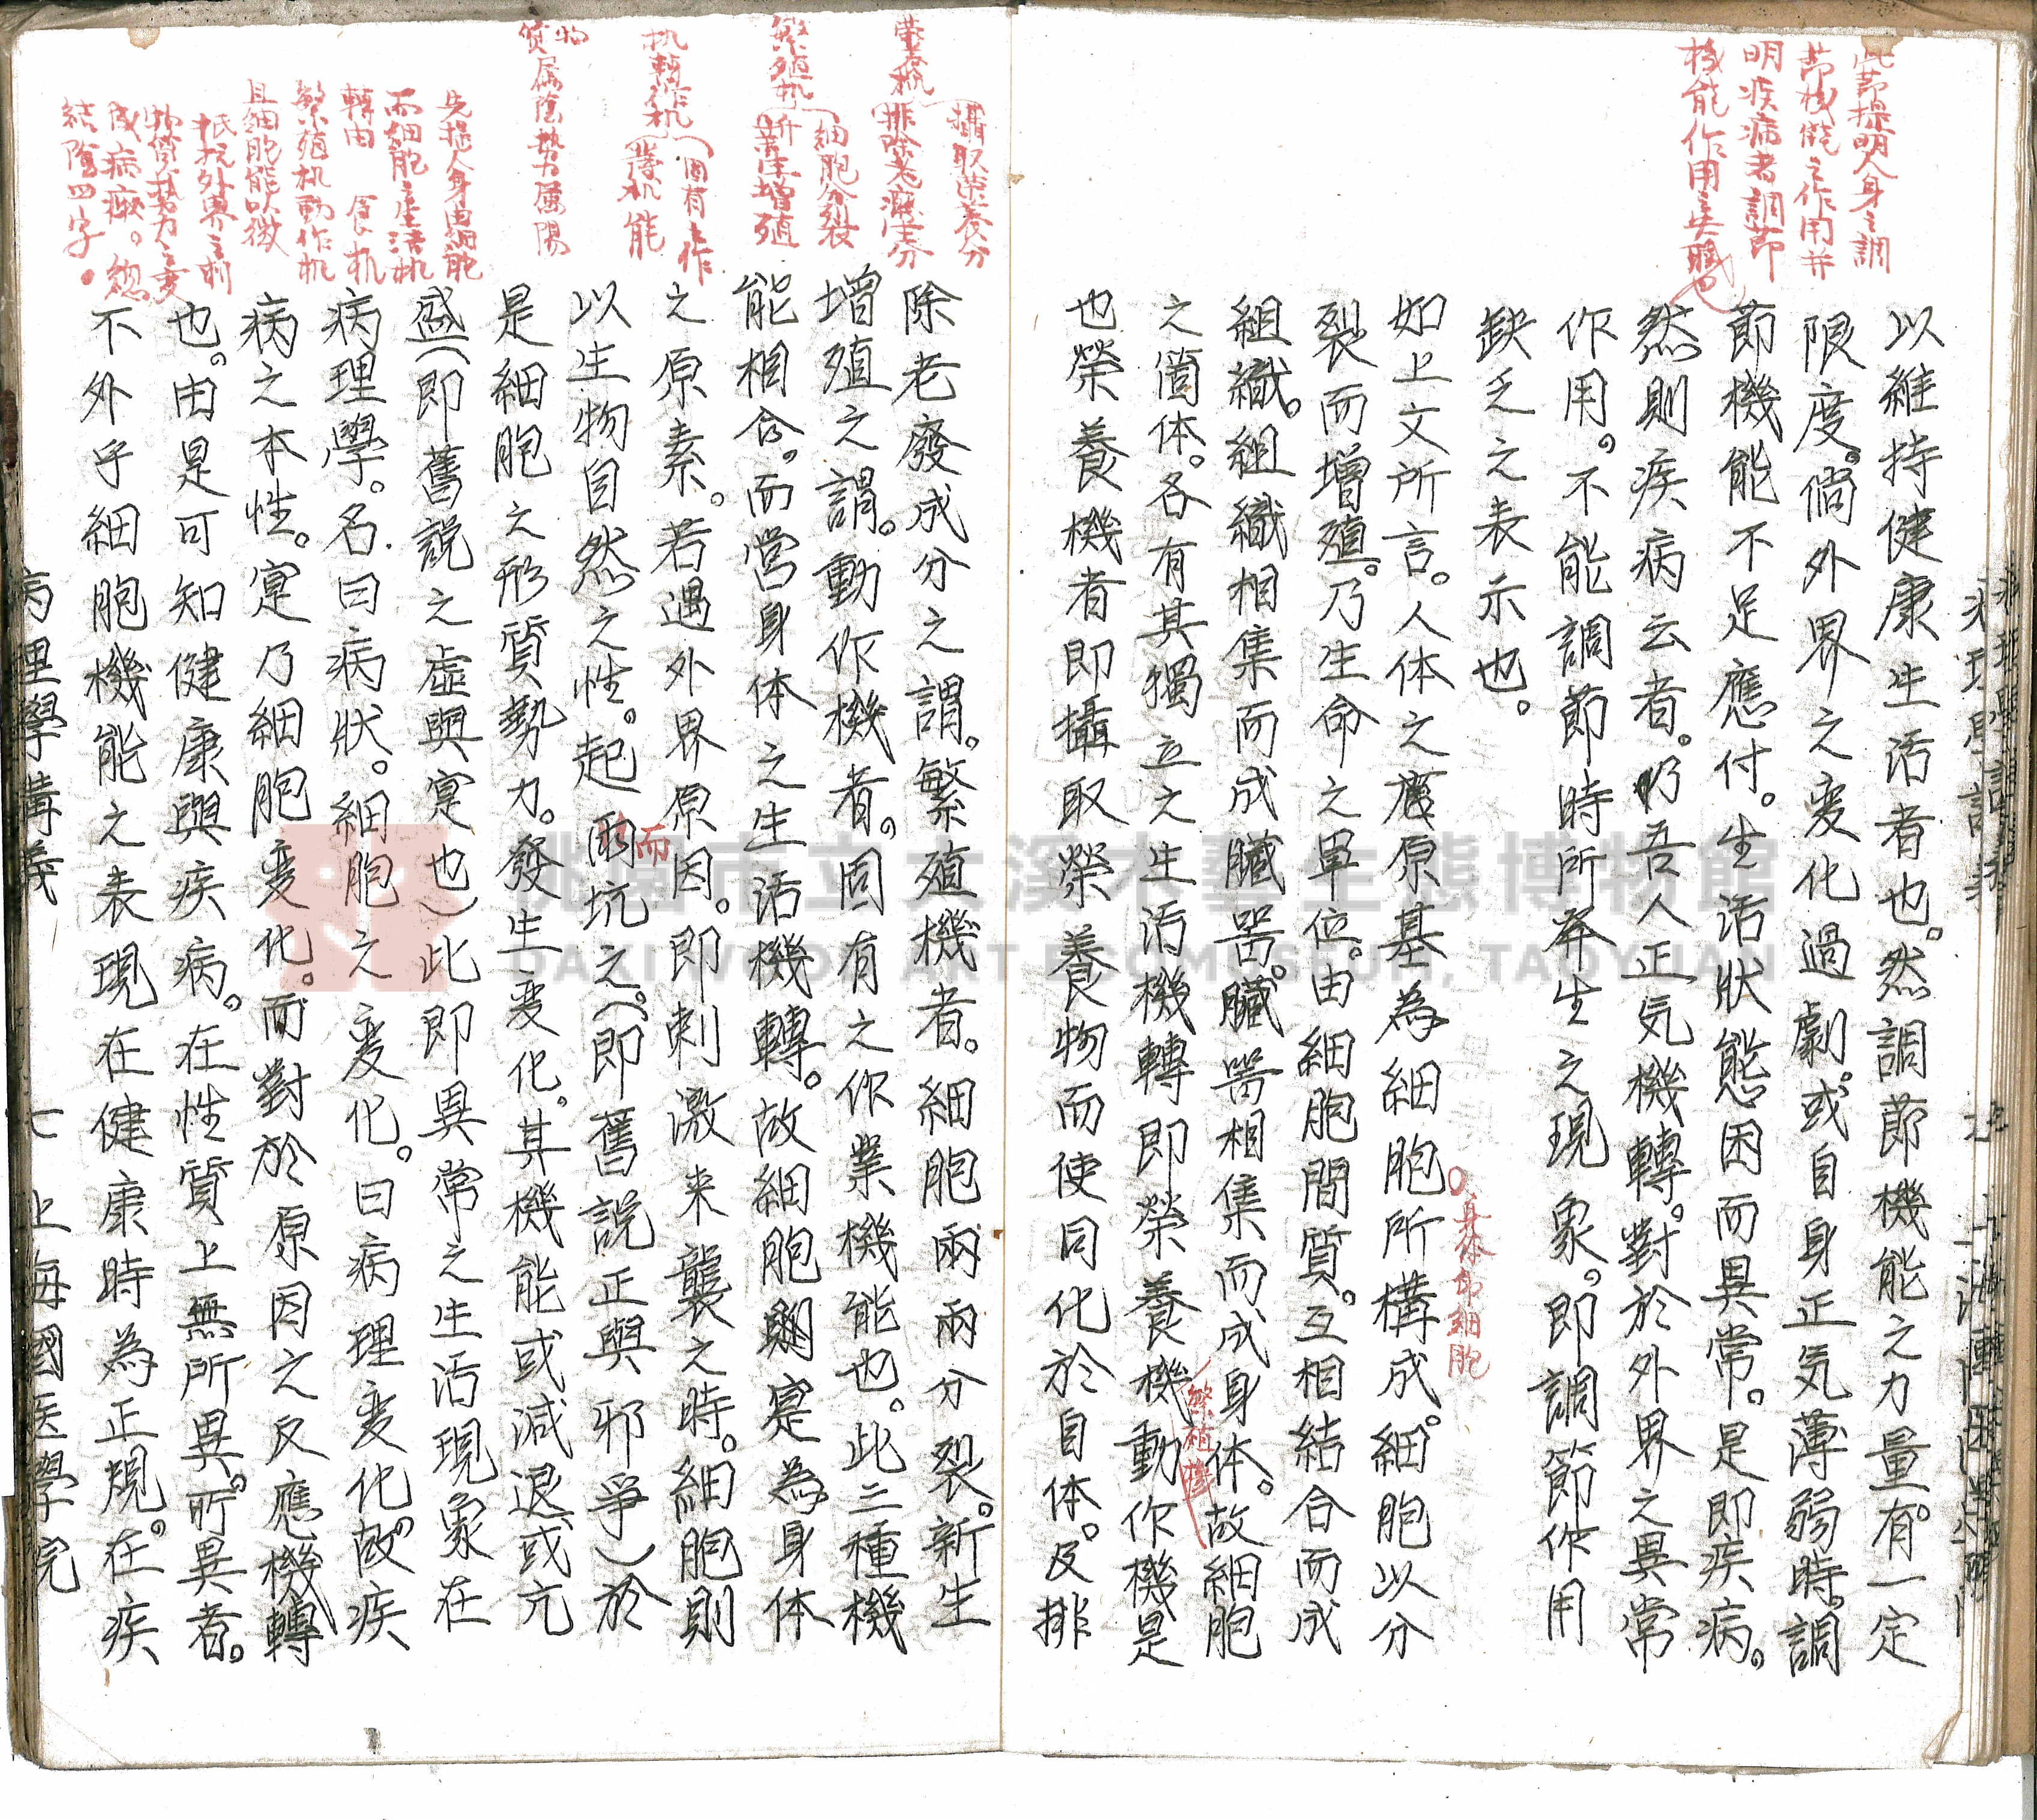 此節提明人身之調
節機能之作用并
明疾病者調節
機能作用之失職也
以維持健康生活者也。然調節機能之力量。有一定
限度。倘外界之变化過劇。或自身正気薄弱時。調
節機能不足應付。生活狀態困而異常。是即疾病。
然則疾病云者。乃吾人正気機轉。對於外界之異常
作用。不能調節時所発生之現象。即調節作用
缺乏之表示也。
身体即細胞
如上文所言。人体之原基為細胞所構成。細胞以分
裂而增殖。乃生命之單位。由細胞間質。互相結合而成
組織。組織相集而成臟器。臟器相集而成身体。故細胞
繁殖機
之箇体。各有其獨立之生活機轉即榮養機動作機是
也榮養機者即攝取榮養物而使同化於自体。及排
攝取榮養分
營養机 排除老廢成分
除老廢成分之謂。繁殖機者。細胞兩兩分裂。新生
細胞分裂
繁殖机 新生增殖
增殖之謂。動作機者。固有之作業機能也。此三種機
能相合。而営身体之生活機轉。故細胞則寔為身体
固有動作
之原素。若遇外界原因。即刺激来襲之時。細胞則
而
以生物自然之性。起而抗之。(即舊說正與邪爭)於
物
質属陰勢力属陽
是細胞之形質勢力。發生变化。其機能或減退或亢
先提人身由細胞
而細胞之生活机
盛(即舊說之虛與寔也)此即異常之生活現象在
轉由 食机
繁殖机動作机
病理學。名曰病狀。細胞之变化。曰病理变化。故疾
且細胞能以微
病之本性。寔乃細胞变化。而對於原因之反應機轉
抵抗外界之刺
也。由是可知健康與疾病。在性質上無所異。所異者。
成病
結陰四字。
不外乎細胞機能之表現在健康時為正規。在疾
病理學講義 七 上海國医學院